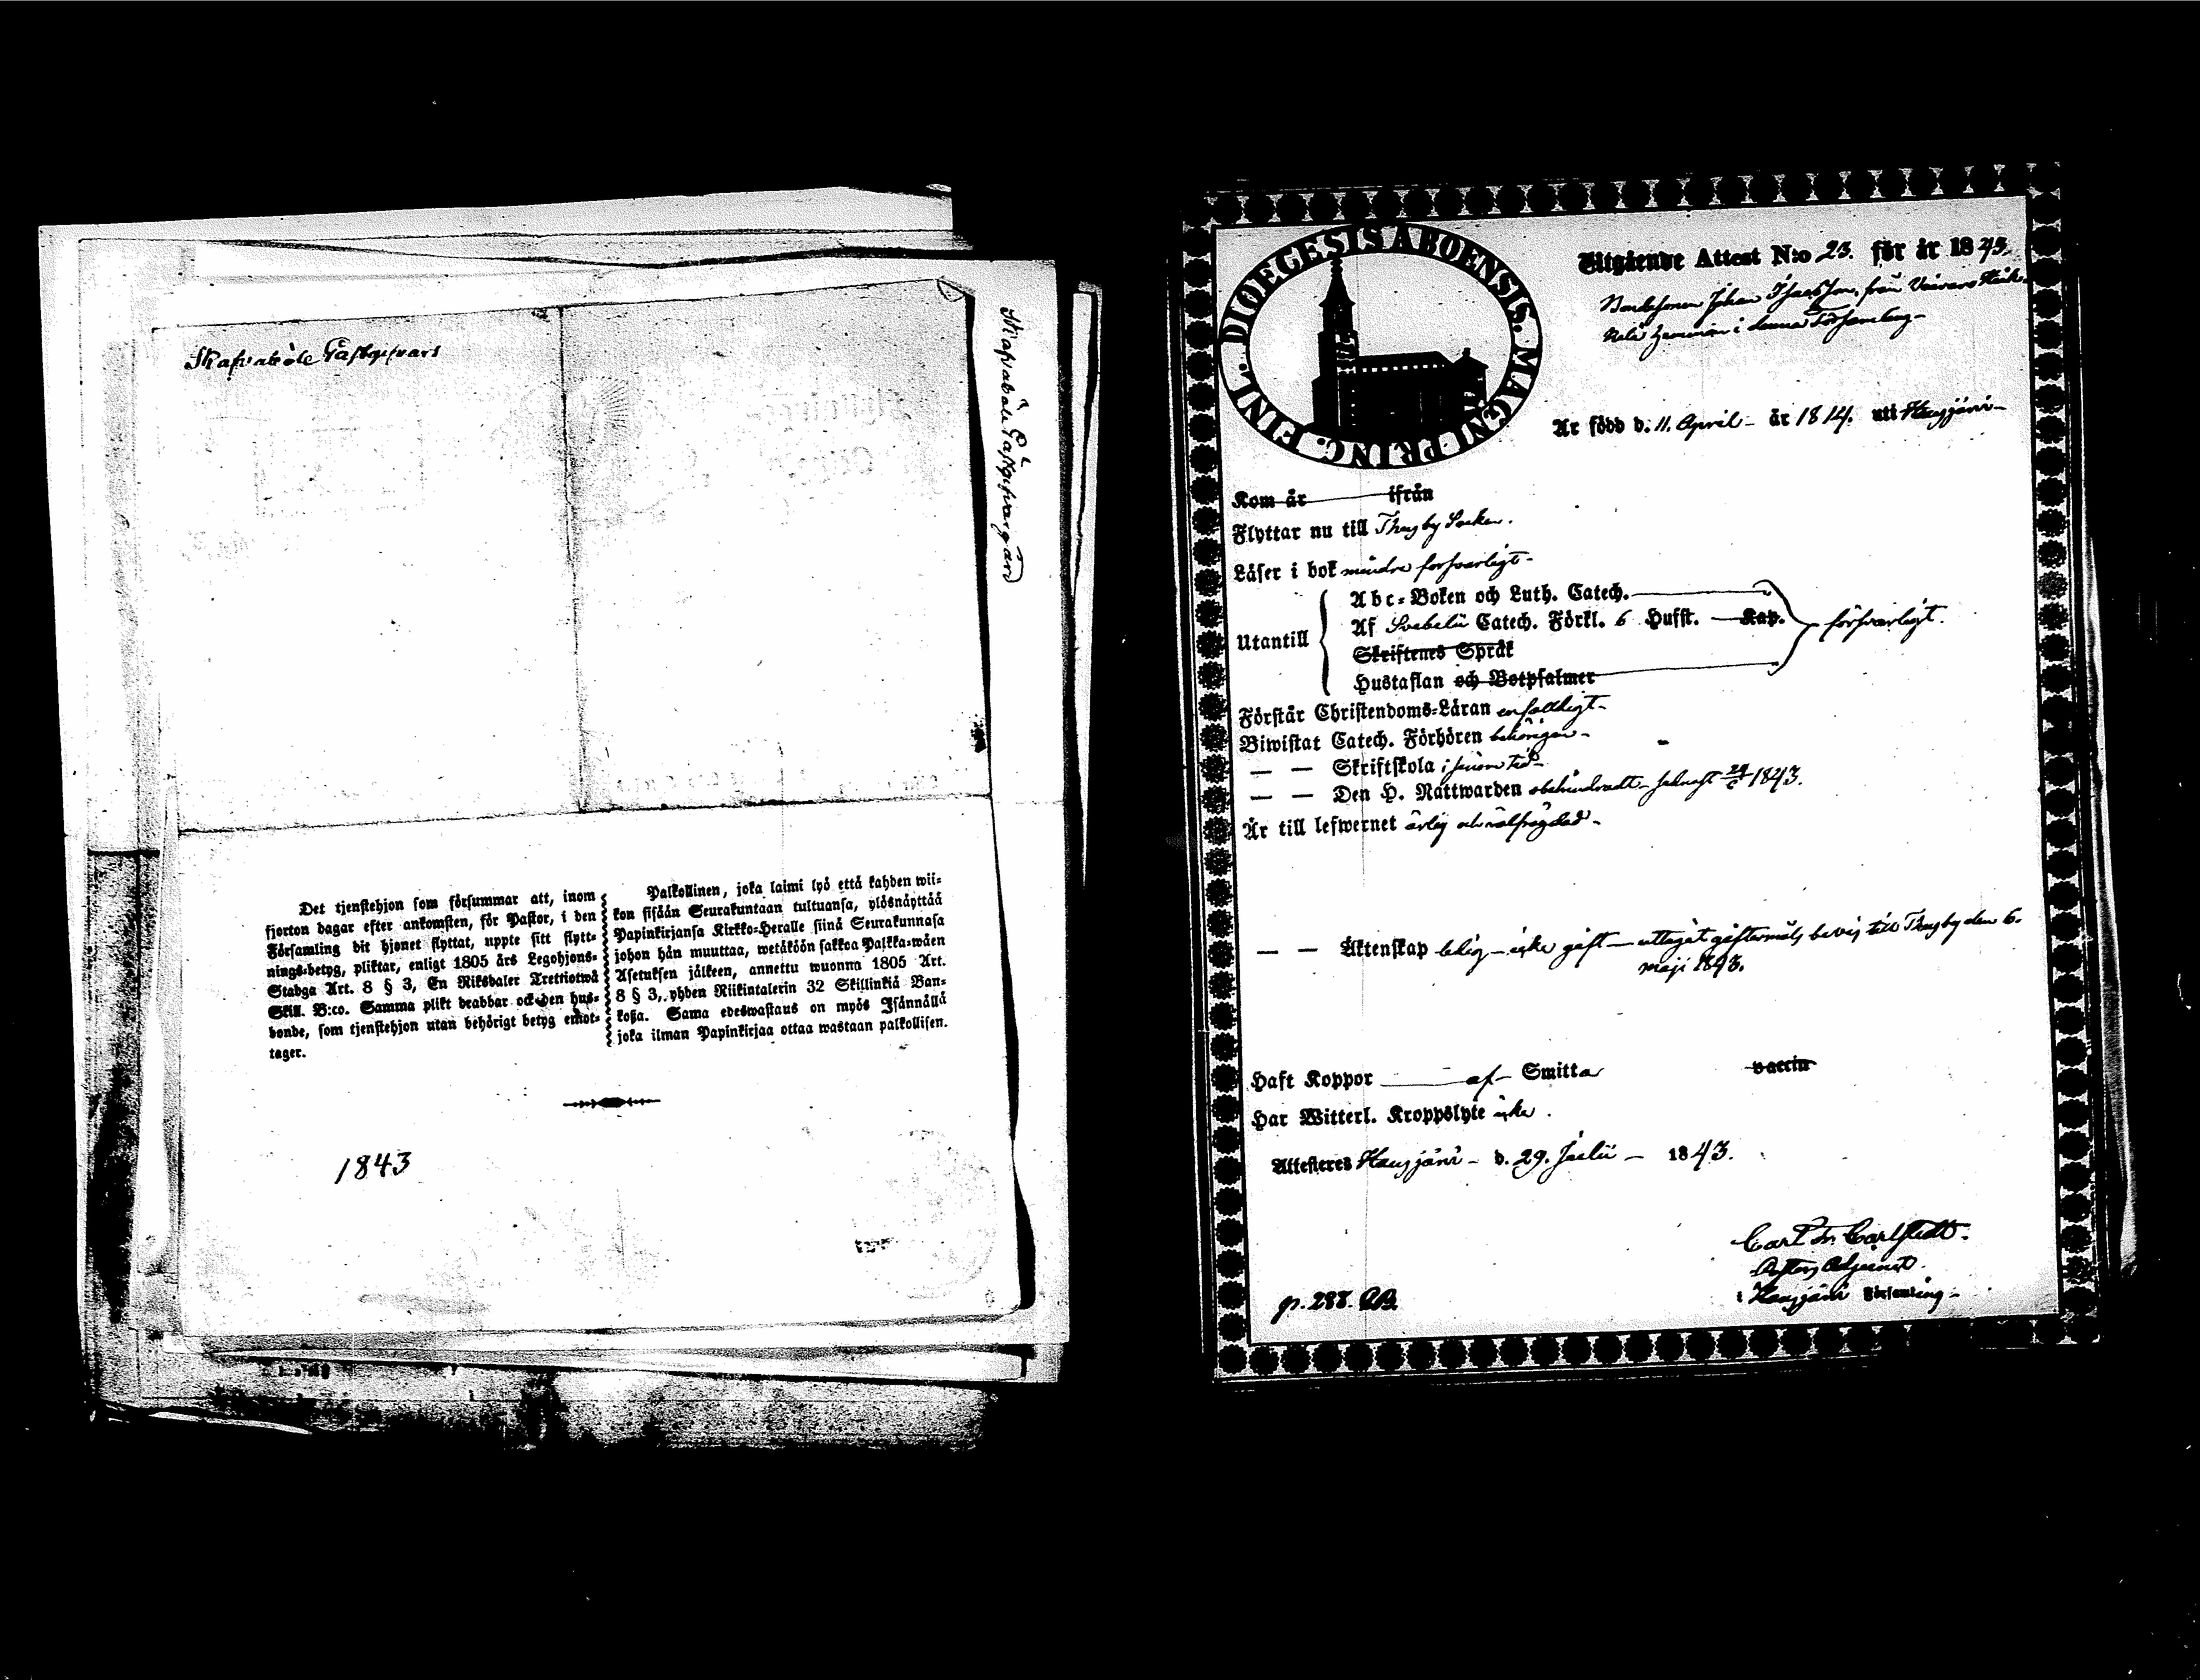 Skafvaböle Gästgifvars
Skafvaböle Gästgifvargård
Det tjenstehjon som försummar att, inom
fjorton dagar efter ankomsten, för Pastor, i den
Församling dit hjonet flyttat, uppte sitt flytt-
nings-betyg, pliktar, enligt 1805 års Legohjons-
Stadga Art. 8 § 3, En Riksdaler Trettiotwå
Skill. B:co. Samma plikt drabbar ock den hus-
bonde, som tjenstehjon utan behörigt betyg emot-
tager.
Palkollinen, joka laimi lyö että kahden wii-
kon sisään Seurakuntaan tultuansa, ylösnäyttää
Papinkirjansa Kirkko-Heralle siinä Seurakunnasa
johon hän muuttaa, wetäköön sakkoa Palkka-wäen
Asetuksen jälkeen, annettu wuonna 1805 Art.
8 § 3, yhden Riikintalerin 32 Skillinkiä Ban-
koßa. Sama edeswastaus on myös Isännällä
joka ilman Papinkirjaa ottaa wastaan palkollisen.
1843
DIOEGESIS ABOENSIS. MAGNI PRING. FINL.
Utgående Attest N:o 23. för år 1843.
Johan Isacsson, från
i denna Församling
Är född d. 11. April år 1814. uti Hausjärvi
Kom år ifrån
Flyttar nu till Thusby Socken.
Läser i bok mindre försvarligt
Utantill
Abc-Boken och Luth. Catech.
Af Svebelii Catech. Förkl. 6 Hufst. Kap.
försvarligt.
Skriftenes Språk
Hustaflan och Botpsalmer
Förstår Christendoms-Läran enfaldigt
Biwistat Catech. Förhören behörigen
— — Skriftskola i sinom tid
— — Den H. Nattwarden obehindradt senast 1843.
Är till lefwernet ärlig och välfrägdad
— — Äktenskap ledig icke gift uttagit giftermåls bevis till Thusby den 6.
maji 1843.
Haft Koppor af Smitta vaccin
Har Witterl. Kroppslyte icke.
Attesteres Hausjärvi d. 29. Julii 1843.
Carl Fr. Carlstedt.
Pastors Adjunct.
i Hausjärvi Församling
p. 288.